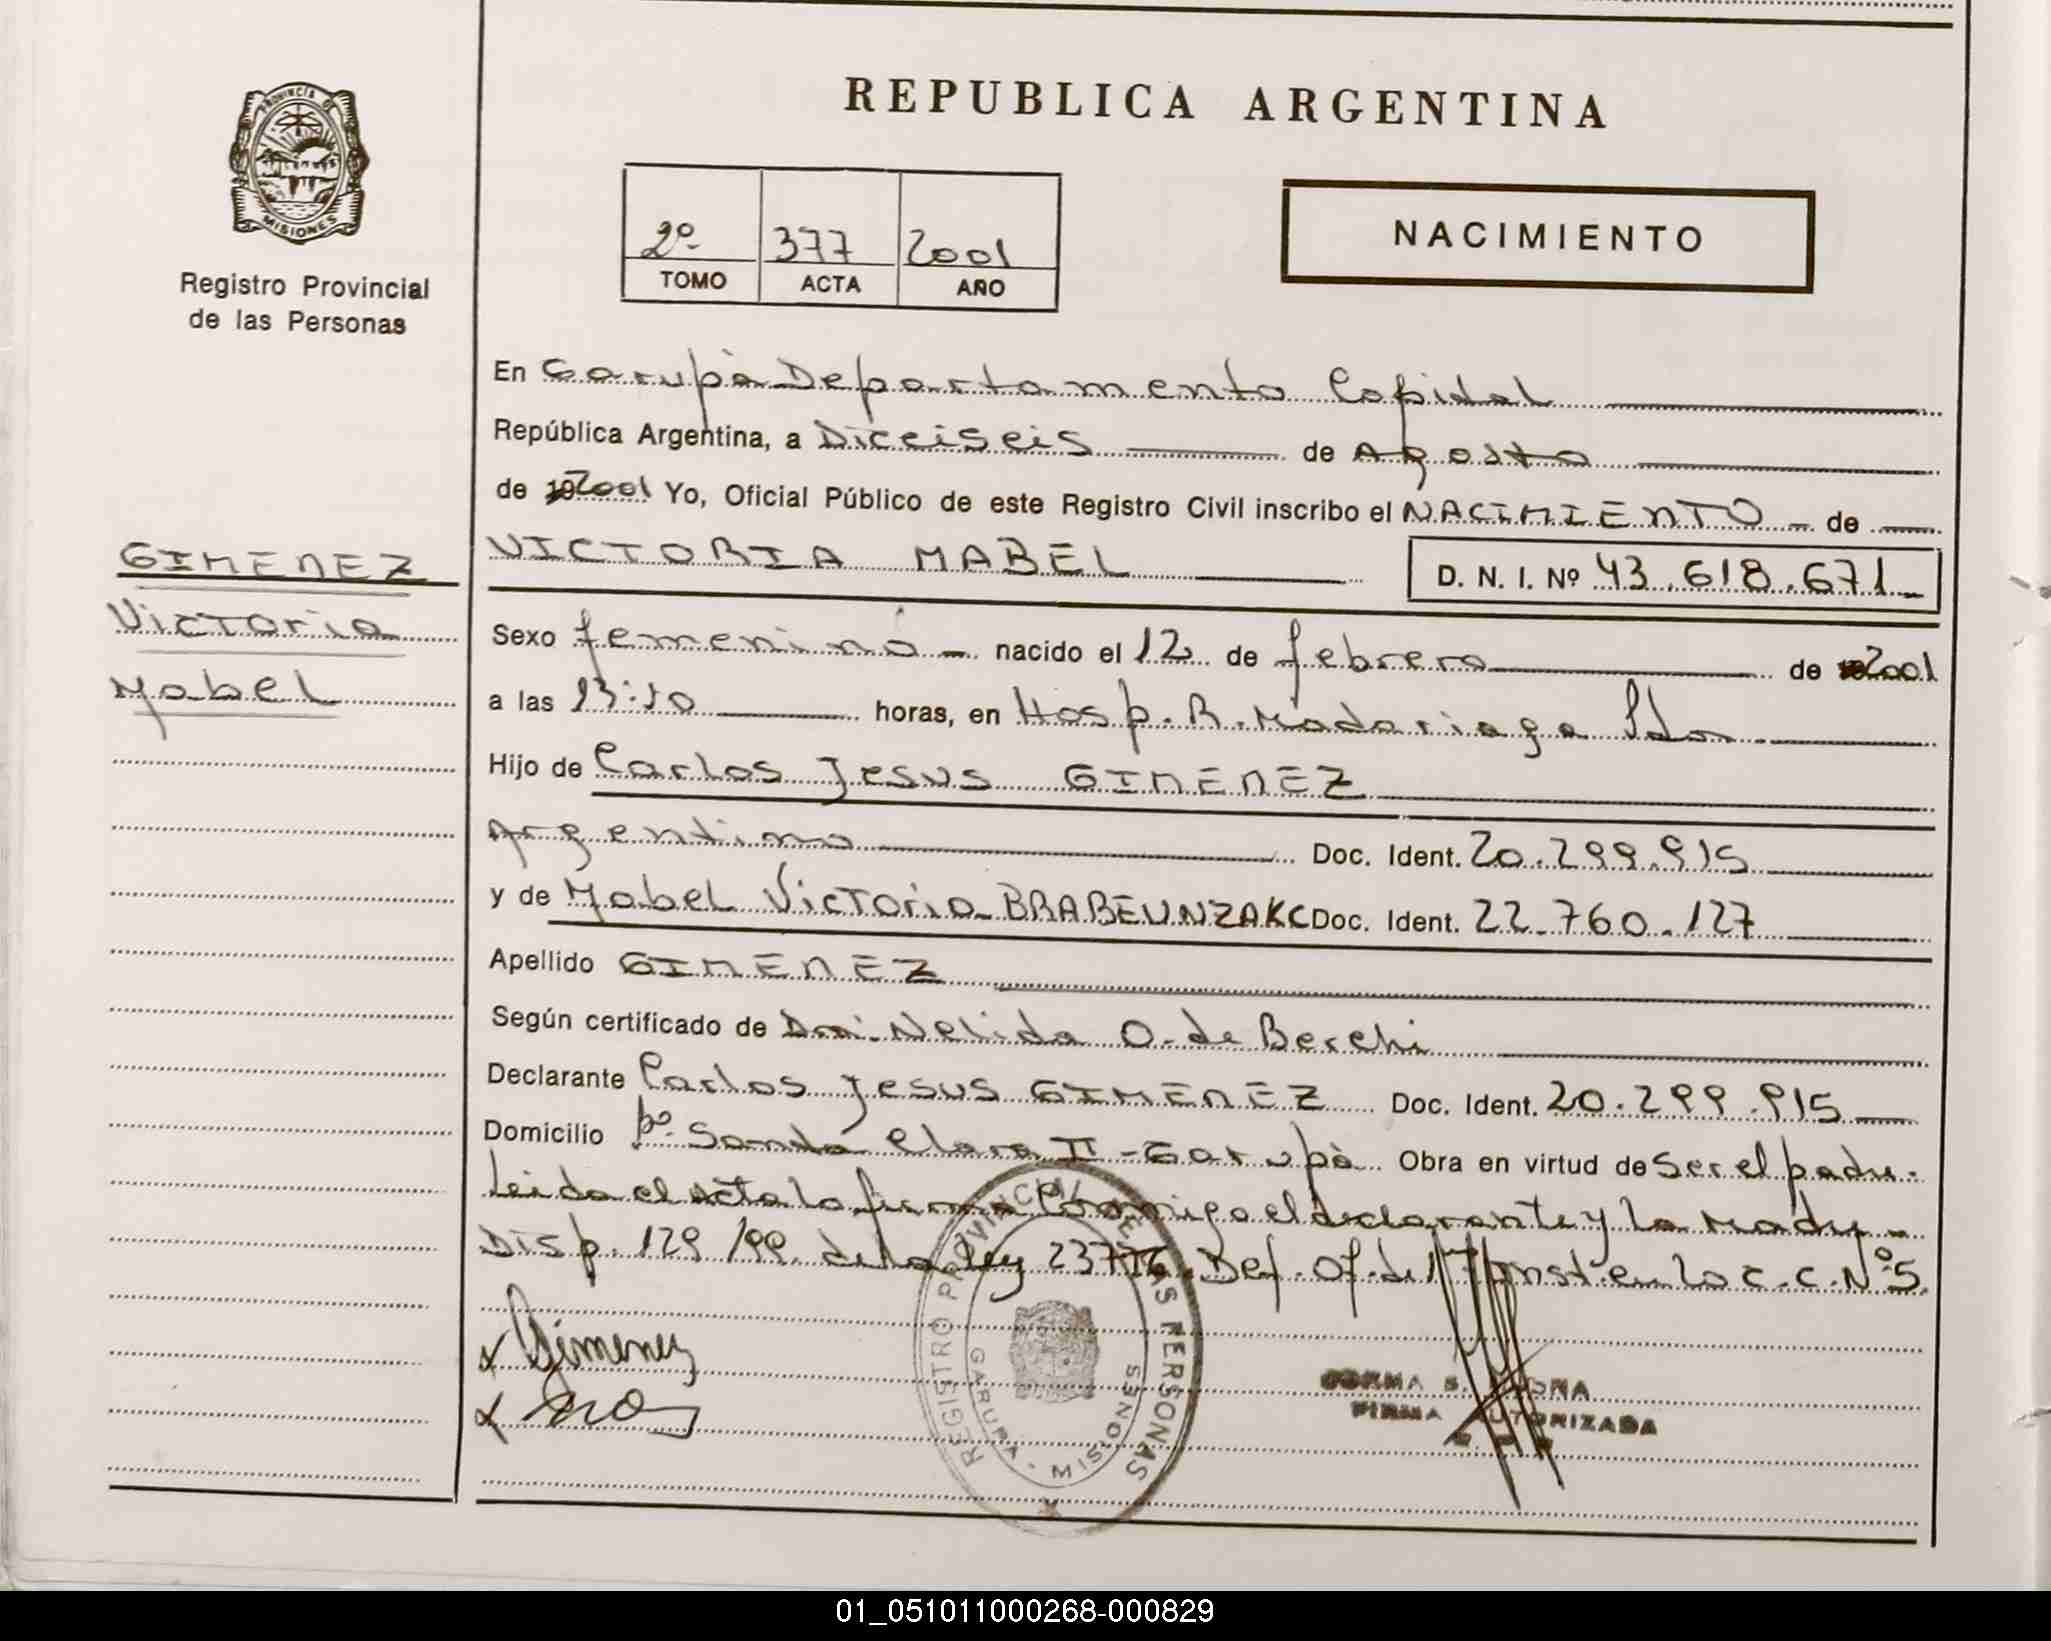 REPUBLICA ARGENTINA
PROVINCIA DE
MISIONES
Registro Provincial
de las Personas
2º 377 2001
TOMO ACTA AÑO
NACIMIENTO
En Garupà Departamento Capital
República Argentina, a Dieciseis de Agosto
de 2001 Yo, Oficial Público de este Registro Civil inscribo el NACIMIENTO de
GIMENEZ
Victoria
Mabel
VICTORIA MABEL D. N. I. Nº 43.618.671
Sexo femenino nacido el 12 de febrero de 2001
a las 13:10 horas, en Hosp. R. Madariaga Pdas
Hijo de Carlos Jesus GIMENEZ
Argentino Doc. Ident. 20.299.915
y de Mabel Victoria Doc. Ident. 22.760.127
Apellido GIMENEZ
Según certificado de Nelida O. de Berchi
Declarante Carlos Jesus GIMENEZ Doc. Ident. 20.299.915
Domicilio Bº Santa Clara II - Garupà Obra en virtud de Ser el padre.
Leida el acta la firma Conmigo el declarante y la Madre
Disp. 129/99 de la ley Def. Of. de Inst en lo C. C. Nº 5.
x Gimenez
x
REGISTRO PROVINCIAL DE LAS PERSONAS
GARUPA - MISIONES
NORMA S.
FIRMA AUTORIZADA
01_051011000268-000829